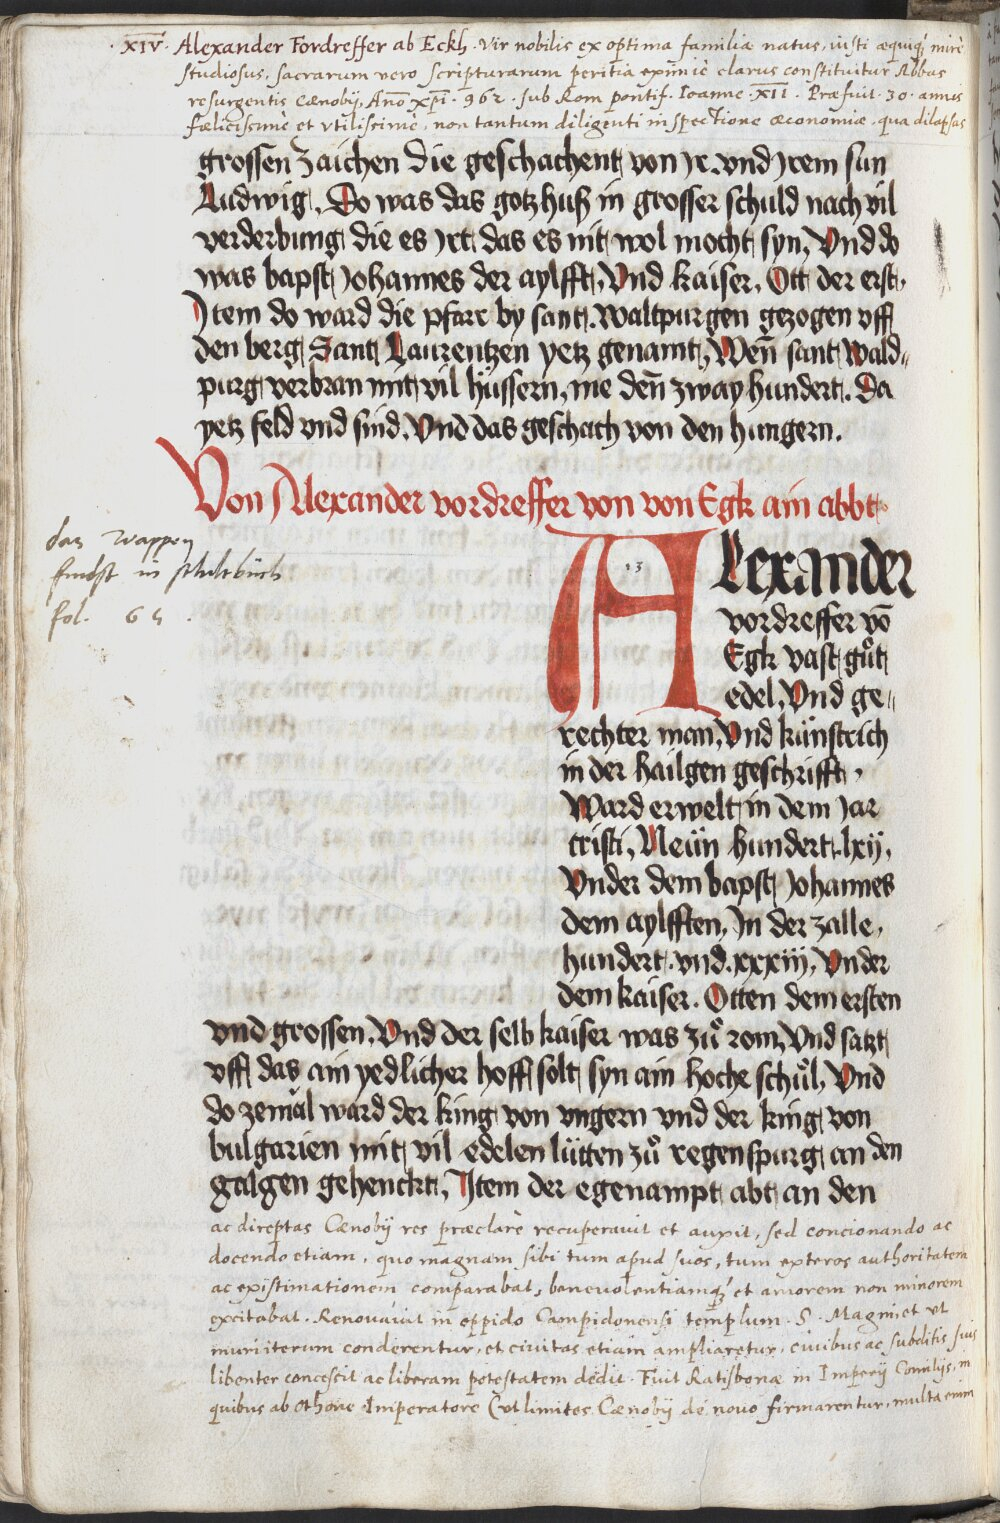 ·XIV· Alexander Fordreffer ab Eckh · Vir nobilis ex optima familia natus, iusti æquiq́ mirè
studiosus, sacrarum vero scripturarum peritia eximiè clarus constituitur Abbas
resurgentis Cænobij, Año xp̃i · 962 · sub Rom pontif. Ioanne · XII · Præfuit · 30 · annis
fælicissimè et vtilissimè, non tantum diligenti inspectione œconomiæ, qua dilapsas
grossen zaichen die geschachent von jr. vnd jrem sun
Ludwig, Do was das gotzhuß in grosser schuld nach vil
verderbung die es jrt das es nit wol mocht syn, Vnd do
was bapst Johannes der aylfft, Vnd kaiser, Ott der erst,
Item do ward die pfarr by sant. Waltpurgen gezogen vff
den berg Sant Laurentzen yetz genamt, Wen̄ sant Wald„
purg verbran mit vil hüssern, me den̄ zway hundert. Da
yetz feld vnd sind, Vnd das geschach von den hungern.
Von Alexander vordreffer von von Egk ain abbt
das Wappen
findst in schiltbuch
fol. 65.
·13·
Alexander
vordreffer vō
Egk vast gůt
edel, Vnd ge„
rechter man, Vnd künstrich
in der hailgen geschrifft,
Ward erwelt in dem Jar
cristi, Neün hundert. lxij,
Vnder dem bapst Johannes
dem aylfften, In der zalle,
hundert. vnd. xxxiij, Vnder
dem kaiser. Otten dem ersten
vnd grossen, Vnd der selb kaiser was zů rom, Vnd satzt
vff das ain yedlicher hoff solt syn ain hoche schůl, Vnd
do zemal ward der king von vngern vnd der king von
bulgarien mit vil edelen lütten zů regenspurg an den
galgen gehenckt, Item der egenampt abt an den
ac direptas Cænobij res præclarè recuperauit et auxit, sed concionando ac
docendo etiam, quo magnam sibi tum apud suos, tum exteros authoritatem
ac existimationem comparabat, beneuolentiamq́ et amorem non minorem
excitabat. Renouauit in oppido Campidonensi templum · S · Magni, et ut
muri iterum conderentur, et ciuitas etiam ampliaretur, ciuibus ac subditis suis
libenter concessit ac liberam potestatem dedit. Fuit Ratisbonæ in Imperij Comitijs, in
quibus ab Othone Imperatore (ut limites Cænobij de nouo firmarentur, multa enim